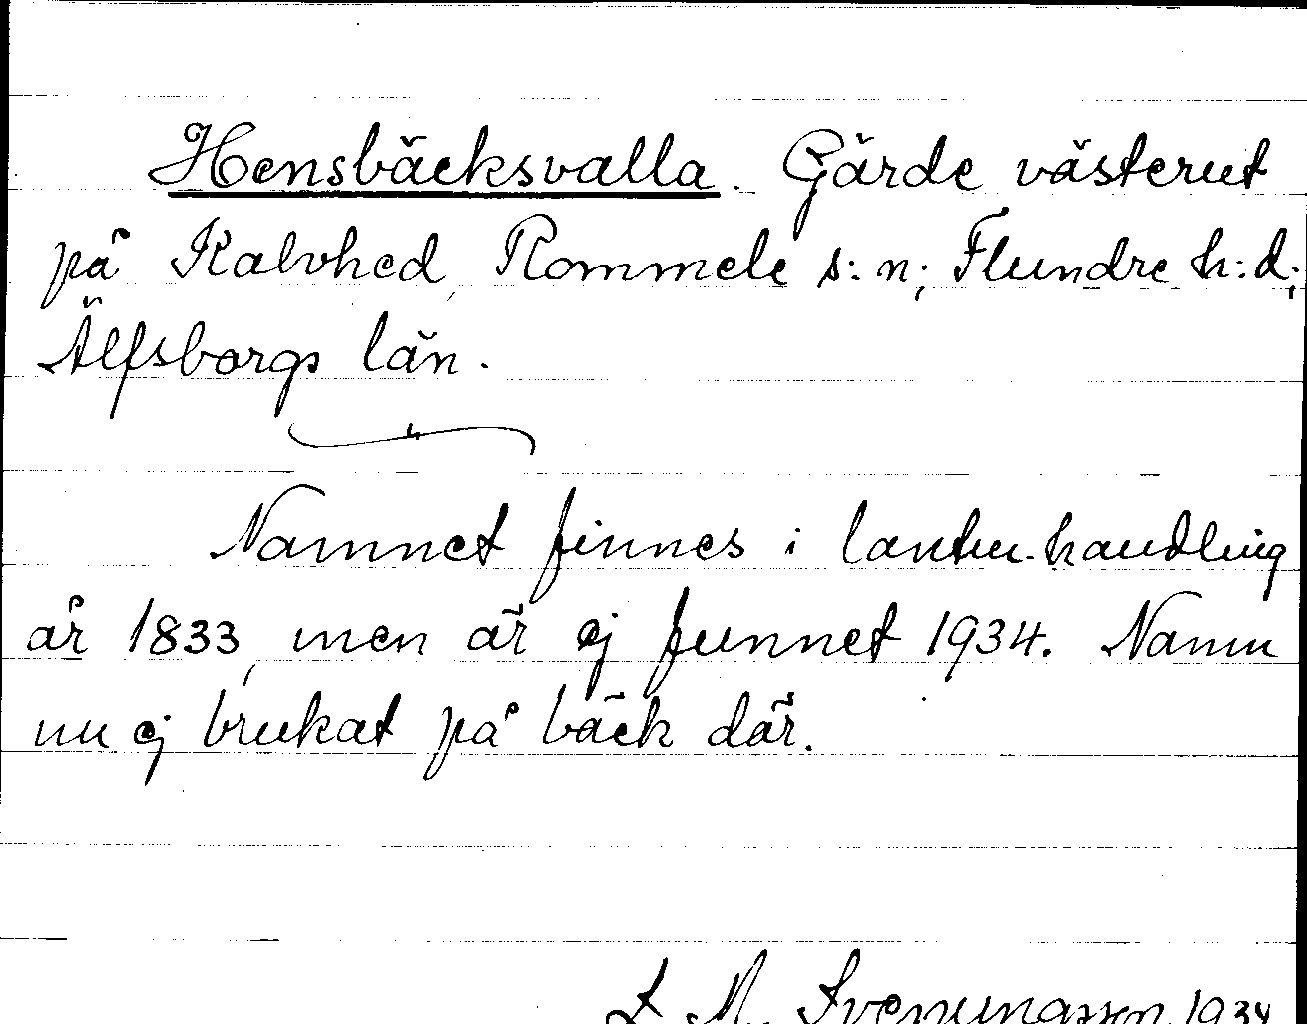 Hensbäcksvalla. Gärde västerut
på Kalvhed, Rommele s:n; Flundre h:d;
Älfsborgs län.
Namnet finnes i lantm. handling
år 1833, men är ej funnet 1934. Namn
nu ej brukat på bäck där.
L. M. Svenungsson 1934